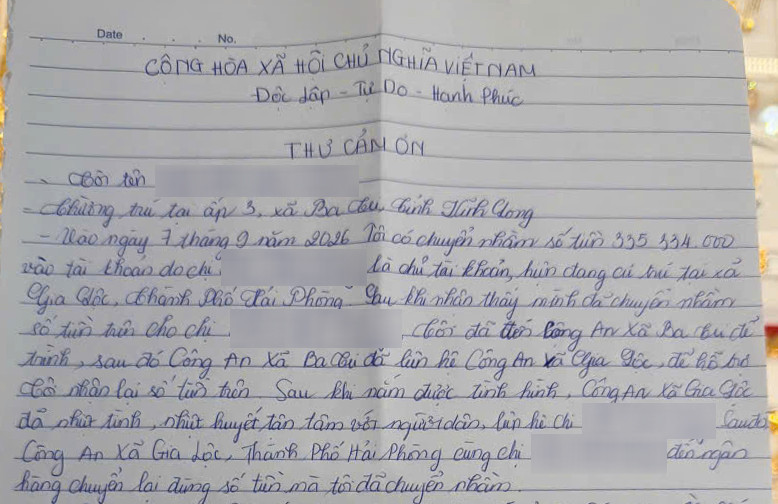 Date . . . No.
CỘNG HÒA XÃ HỘI CHỦ NGHĨA VIỆT NAM
Độc Lập - Tự Do - Hạnh Phúc
THƯ CẢM ƠN
- Tôi tên
- Thường trú tại ấp 3, xã Ba Càu, tỉnh Vĩnh Long
- Vào ngày 7 tháng 9 năm 2026 Tôi có chuyển nhầm số tiền 335 334.000
vào tài khoản do chị là chủ tài khoản, hiện đang cư trú tại xã
Gia Lộc, thành Phố Hải Phòng. Sau khi nhận thấy mình đã chuyển nhầm
số tiền trên cho chị , tôi đã đến Công An Xã Ba Càu để
trình, sau đó Công An Xã Ba Càu đã liên hệ Công An xã Gia Lộc, để hỗ trợ
tôi nhận lại số tiền trên. Sau khi nắm được tình hình, Công An Xã Gia Lộc
đã nhiệt tình, nhiệt huyết, tận tâm với người dân, liên hệ chị Sau đó
Công An Xã Gia Lộc, Thành Phố Hải Phòng cùng chị đến ngân
hàng chuyển lại đúng số tiền mà tôi đã chuyển nhầm.